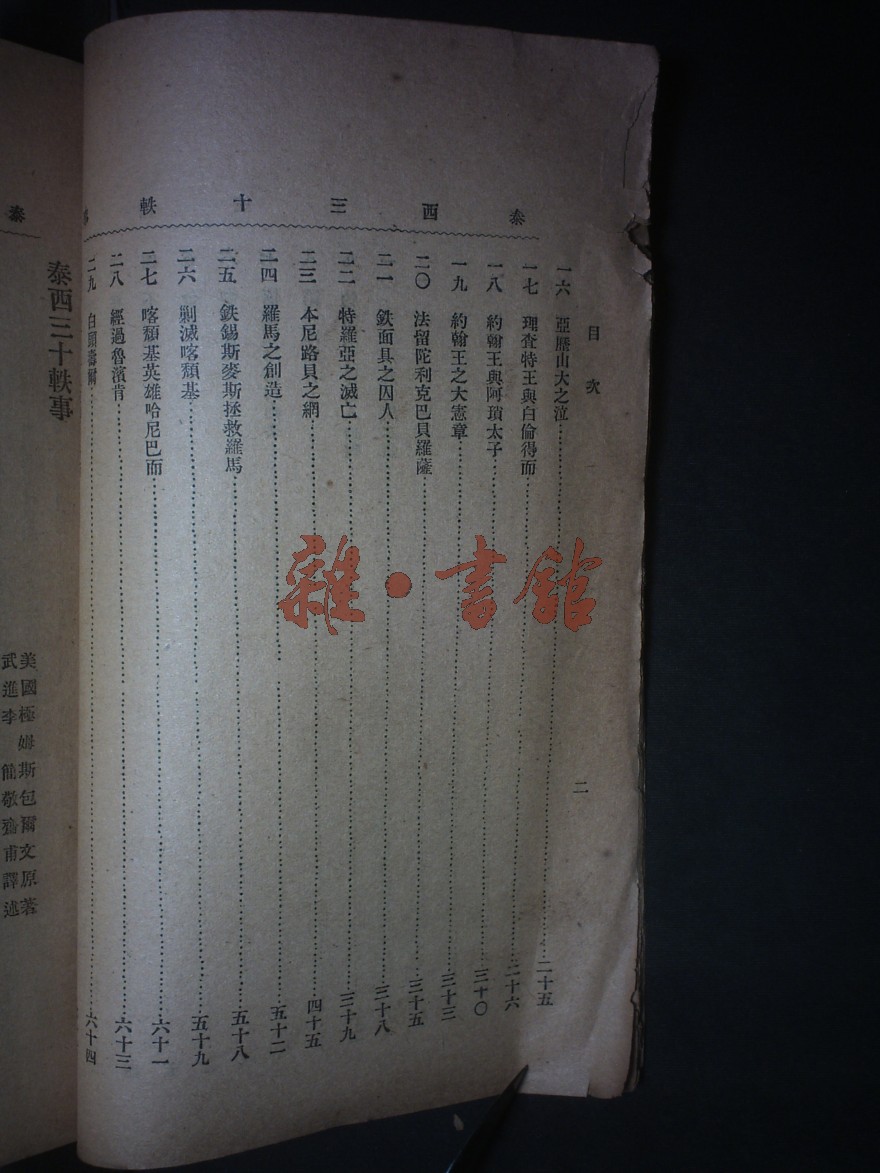 泰西三十軼
目次
二
一六 亞歷山大之泣 二十五
一七 理查特王與白倫得而 二十六
一八 約翰王與阿瑣太子 三十〇
一九 約翰王之大憲章 三十三
二〇 法留陀利克巴貝羅薩 三十五
二一 鉄面具之囚人 三十八
二二 特羅亞之滅亡 三十九
二三 本尼路貝之網 四十五
二四 羅馬之創造 五十二
二五 鉄錫斯麥斯拯救羅馬 五十八
二六 剿滅喀頹基 五十九
二七 喀頹基英雄哈尼巴而 六十一
二八 經過魯濱肯 六十三
二九 白頭壽爾 六十四
雜·書館
泰
泰西三十軼事
美國極姆斯包爾文原著
武進李簡敬 甫譯述